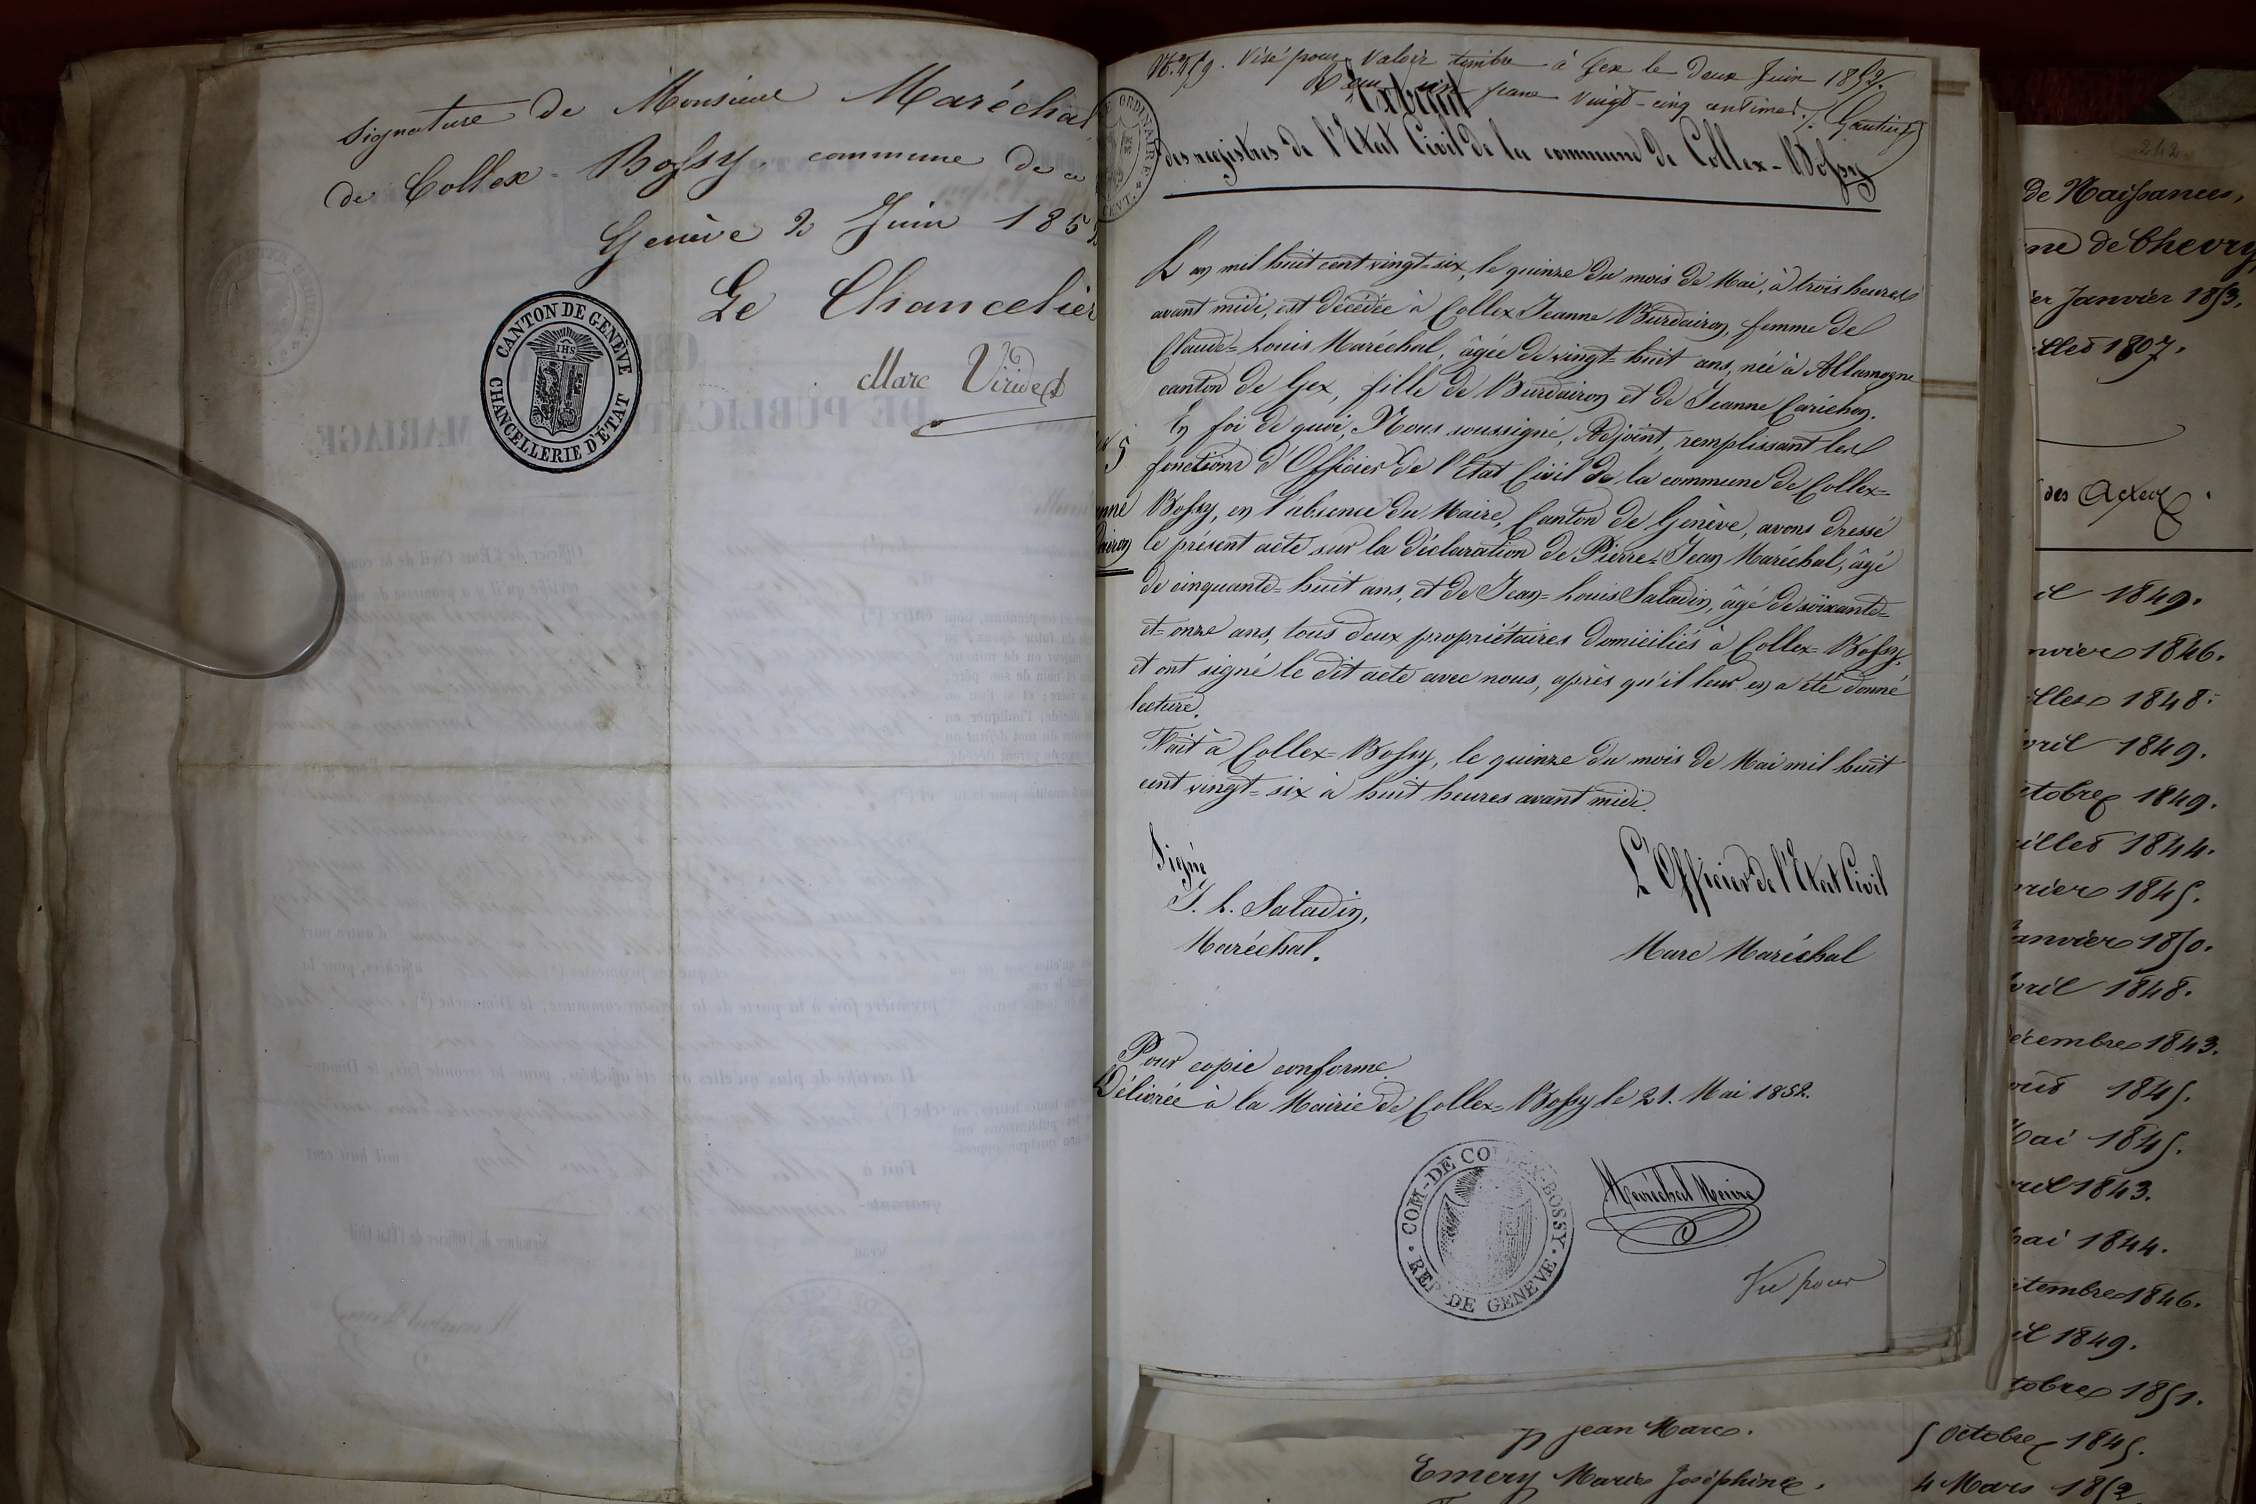 Signature de Monsieur Maréchal
de Collex-Bossy, commune de ce
Genève 2 Juin 185
Le Chancelier
Marc Viridet
CANTON DE GENEVE
IHS
CHANCELLERIE D'ÉTAT
Visé pour valoir timbre à Gex le deux Juin 1852.
vingt-cinq centimes
Extrait
des registres de l'Etat Civil de la commune de Collex-Bossy
L'an mil huit cent vingt-six, le quinze du mois de Mai, à trois heures
avant midi, est décédée à Collex Jeanne Burdairon, femme de
Claude-Louis Maréchal, âgée de vingt-huit ans, née à Allemogne
canton de Gex, fille de Burdairon et de Jeanne Carichon.
En foi de quoi, Nous soussigné, Adjoint, remplissant les
fonctions d'Officier de l'Etat Civil de la commune de Collex-
Bossy, en l'absence du Maire, Canton de Genève, avons dressé
le présent acte sur la déclaration de Pierre-Jean Maréchal, âgé
de cinquante-huit ans, et de Jean-Louis Saladin, âgé de soixante-
et-onze ans, tous deux propriétaires domiciliés à Collex-Bossy,
et ont signé le dit acte avec nous, après qu'il leur en a été donné
lecture.
Fait à Collex-Bossy, le quinze du mois de Mai mil huit
cent vingt-six à huit heures avant midi.
Signé
J. L. Saladin,
Maréchal.
L'Officier de l'Etat Civil
Marc Maréchal
Pour copie conforme
Délivrée à la Mairie de Collex-Bossy le 21. Mai 1852.
COM-DE COLLEX-BOSSY
REP-DE GENEVE
Maréchal Maire
Vu pour
242
de Naissances,
ne de Chevry
er Janvier 1853,
illet 1807.
des Actes.
il 1849.
nvier 1846.
illet 1848.
vril 1849.
ctobre 1849.
uillet 1844.
vrier 1845.
Janvier 1850.
vril 1848.
écembre 1843.
out 1845.
Mai 1845.
ril 1843.
Mai 1844.
ptembre 1846.
il 1849.
tobre 1851.
Jean Marc. 5 Octobre 1845.
Emery Marie Joséphine. 4 Mars 1852